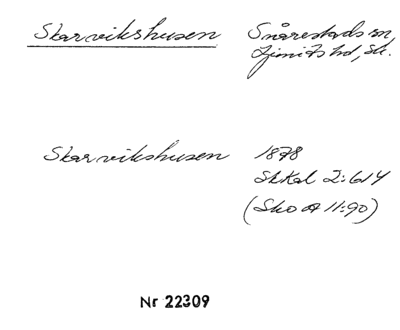 Skarvikshusen Snårestads sn,
Ljunits hd, Sk.
Skarvikshusen 1878
SkKal 2:614
(Sko A 11:90)
Nr 22309